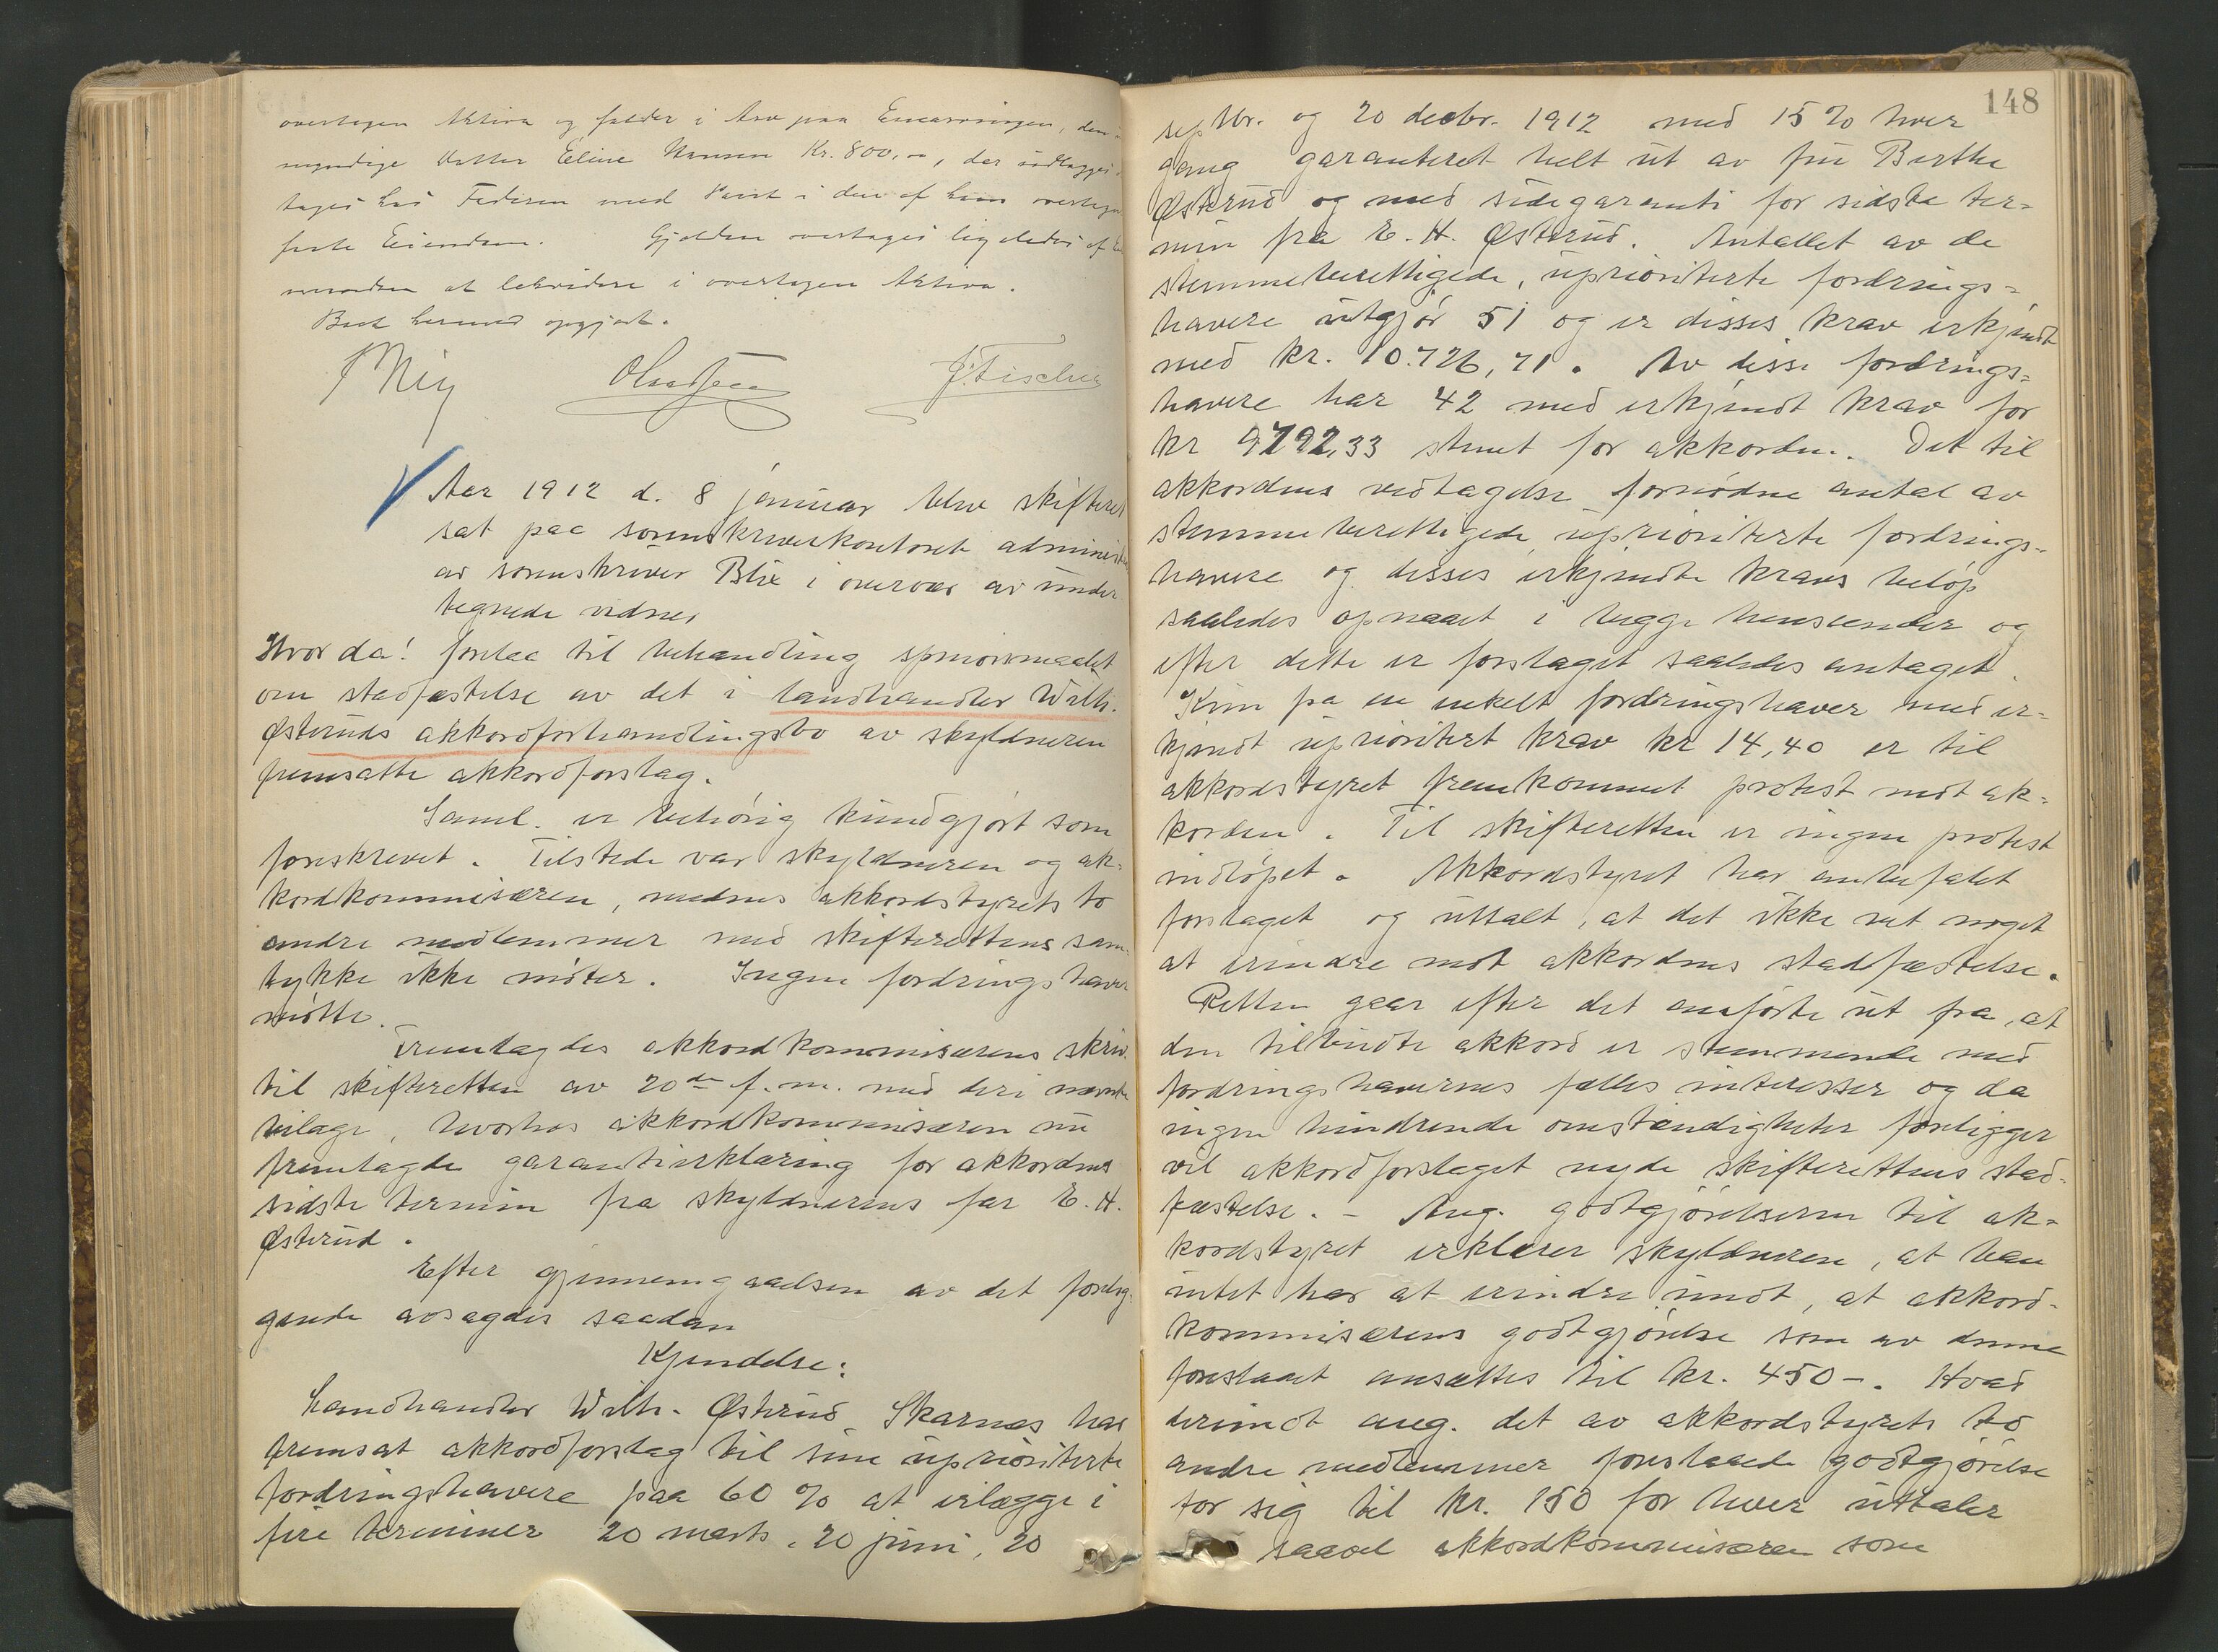 overtagen Aktiva og falder i Arv paa Enearvingen, den
myndige Datter Eline Hansen Kr. 800,00, der udlægges
tages hos Faderen med Pant i den af ham overtagne
faste Eiendom. Gjælden overtages ligeledes af
at i overtagen Aktiva.
Boet hermed opgjort.
Aar 1912 d. 8 januar blev skifteret
sat paa sorenskriverkontoret administ
av sorenskriver Blix i overvær av under
tegnede vidner
Hvor da: foretaa til behandling spørsmaalet
om stadfæstelse av det i landhandler Wilh.
Østeruds akkordforhandlingsbo av skyldneren
fremsatte akkordforslag.
Saml. er behørig kundgjort som
foreskrevet. Tilstede var skyldneren og ak-
kordkommisæren, medens akkordstyrets to
andre medlemmer med skifterettens sam-
tykke ikke møter. Ingen fordringshaver
møtte.
Fremlagdes akkordkommisærens skriv.
til skifteretten av 20de f.m. med deri nævnte
bilage, hvorhos akkordkommisæren nu
fremlagde garantierklæring for akkordens
sidste termin fra skyldnerens far E. H.
Østerud.
Efter gjennemgaaelsen av det forelig-
gende avsagdes saadan
Kjendelse:
Landhandler Wilh. Østerud Skarnes har
fremsat akkordforslag til sine uprioriterte
fordringshavere paa 60 % at erlægge i
fire terminer 20 marts, 20 juni, 20
148
septbr. og 20 decbr. 1912 med 15 % hver
gang garanteret helt ut av fru Berthe
Østerud og med sidegaranti for sidste ter-
min fra E. H. Østerud. Antallet av de
stemmeberettigede, uprioriterte fordrings-
havere utgjør 51 og er disses krav erkjendt
med kr. 10.726,71. Av disse fordrings-
havere har 42 med erkjendt krav for
kr 9792,33 stemt for akkorden. Det til
akkordens vedtagelse fornødne antal av
stemmeberettigede uprioriterte fordrings-
havere og disses erkjendte kravs beløp
saaledes opnaaet i begge henseender og
efter dette er forslaget saaledes antaget.
Kun fra en enkelt fordringshaver med er-
kjendt uprioritert krav kr 14,40 er til
akkordstyret fremkommet protest mot ak-
korden. Til skifteretten er ingen protest
indløpet. Akkordstyret har anbefalet
forslaget og uttalt, at det ikke vet noget
at erindre mot akkordens stadfæstelse.
Retten gaar efter det anførte ut fra, at
den tilbudte akkord er stemmende med
fordringshavernes fælles interesser og da
ingen hindrende omstændigheter foreligger
vil akkordforslaget nyde skifterettens stad-
fæstelse. – Ang. godtgjørelserne til ak-
kordstyret erklærer skyldneren, at han
intet har at erindre imot, at akkord-
kommisærens godtgjørelse som av denne
foreslaaet ansættes til kr. 450 –. Hvad
derimot ang. det av akkordstyrets to
andre medlemmer foreslaaede godtgjørelse
for sig til kr. 150 for hver uttaler
saavel akkordkommisæren som